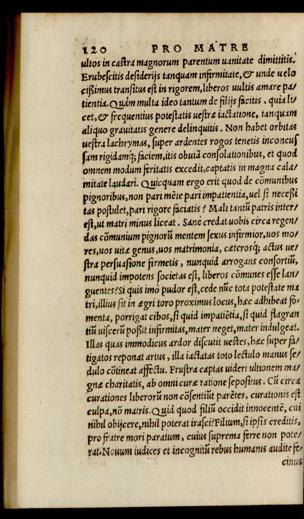 120 PRO MATRE
ultos in castra magnorum parentum uanitate dimittitis.
Erubescitis desiderijs tanquam infirmitate, & unde uelo
cißimus transitus est in rigorem, liberos uultis amare pa-
tientia. Quàm multa ideo tantum de filijs facitis, quia li-
cet, & frequentius potestatis uestræ iactatione, tanquam
aliquo grauitatis genere delinquitis. Non habet orbitas
uestra lachrymas, super ardentes rogos tenetis inconcus
sam rigidamq; faciem, itis obuiã consolationibus, et quod
omnem modum feritatis excedit, captatis in magna cala-
mitate laudari. Quicquam ergo erit quod de cõmunibus
pignoribus, non pari mẽte pari impatientia, uel si necessi
tas postulet, pari rigore faciatis? Mali tantũ patris inter-
est, ut matri minus liceat. Sanè credat uobis circa regen-
das cõmunium pignorũ mentem sexus infirmior, uos mo-
res, uos uitæ genus, uos matrimonia, cæterosq; actus ue-
stra persuasione firmetis, nunquid arrogans consortiũ,
nunquid impotens societas est, liberos cõmunes esse lan-
guentes? Si quis imò pudor est, cede nũc tota potestate ma
tri, illius sit in ægri toro proximus locus, hæc adhibeat fo-
menta, porrigat cibos, si quid impatiẽtia, si quid flagran
tiũ uiscerũ poßit infirmitas, mater neget, mater indulgeat.
Illas quas immodicus ardor discutit uestes, hæc super fa-
tigatos reponat artus, illa iactatas toto lectulo manus se-
dulo cõtineat affectu. Frustra captas uideri ultionem ma-
gnæ charitatis, ab omni curæ ratione sepositus. Cũ circa
curationes liberorũ non cõsentiũt parẽtes, curationis est
culpa, nõ matris. Quid quod filiũ occidit innocentẽ, cui
nihil obijcere, nihil poterat irasci? Filium, si ipsis creditis,
pro fratre mori paratum, cuius suprema ferre non pote-
rat. Nouum iudices et incognitũ rebus humanis audite fe-
cinus